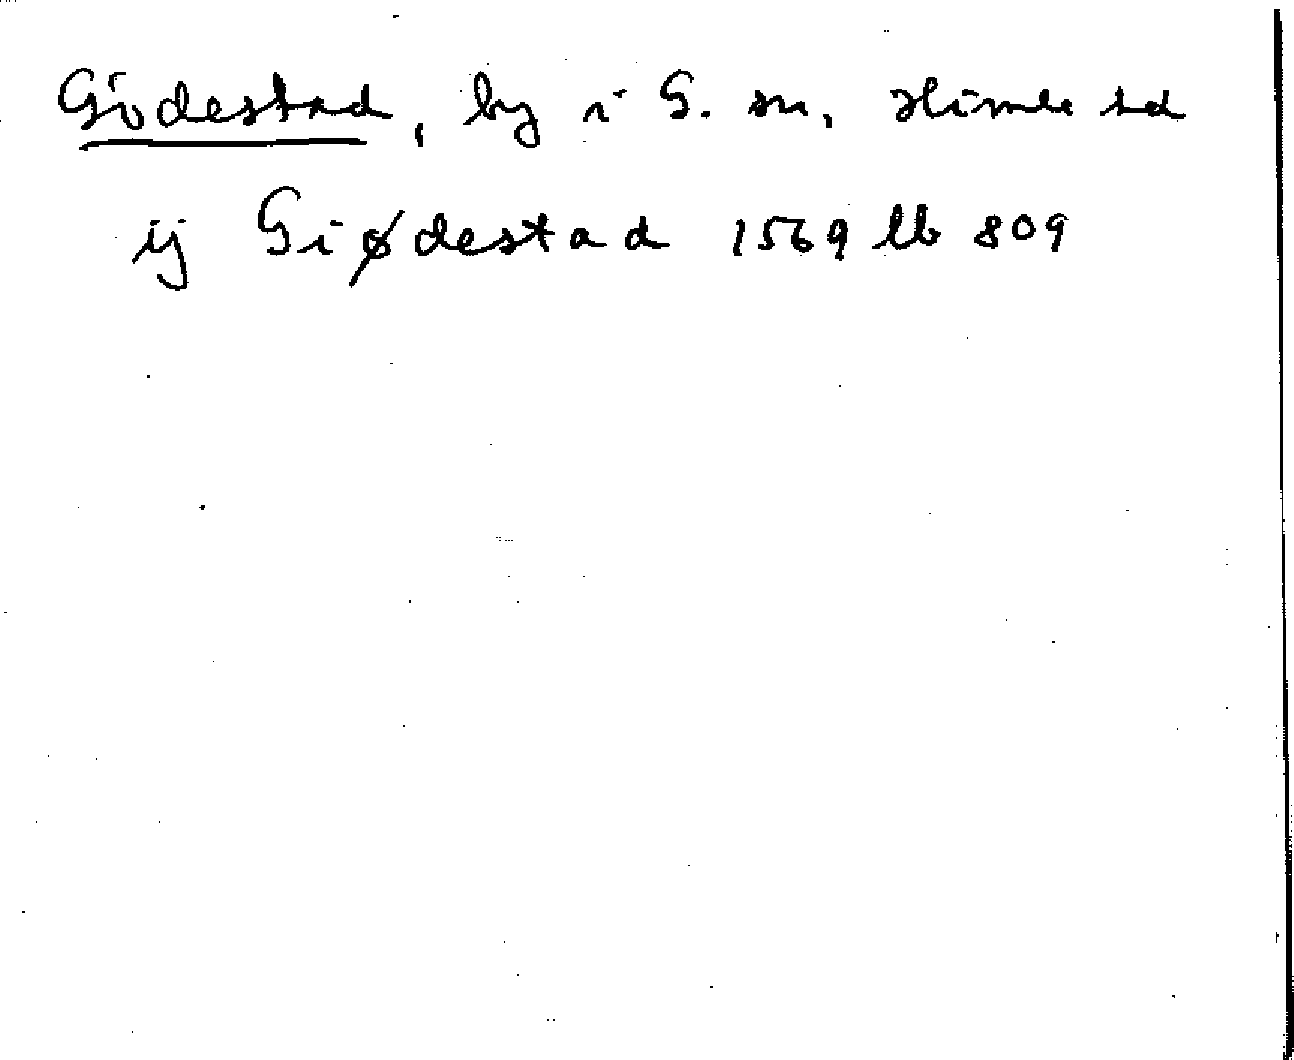 Gödestad, by i G. sn, Himle hd
ij Giødestad 1569 lb 809